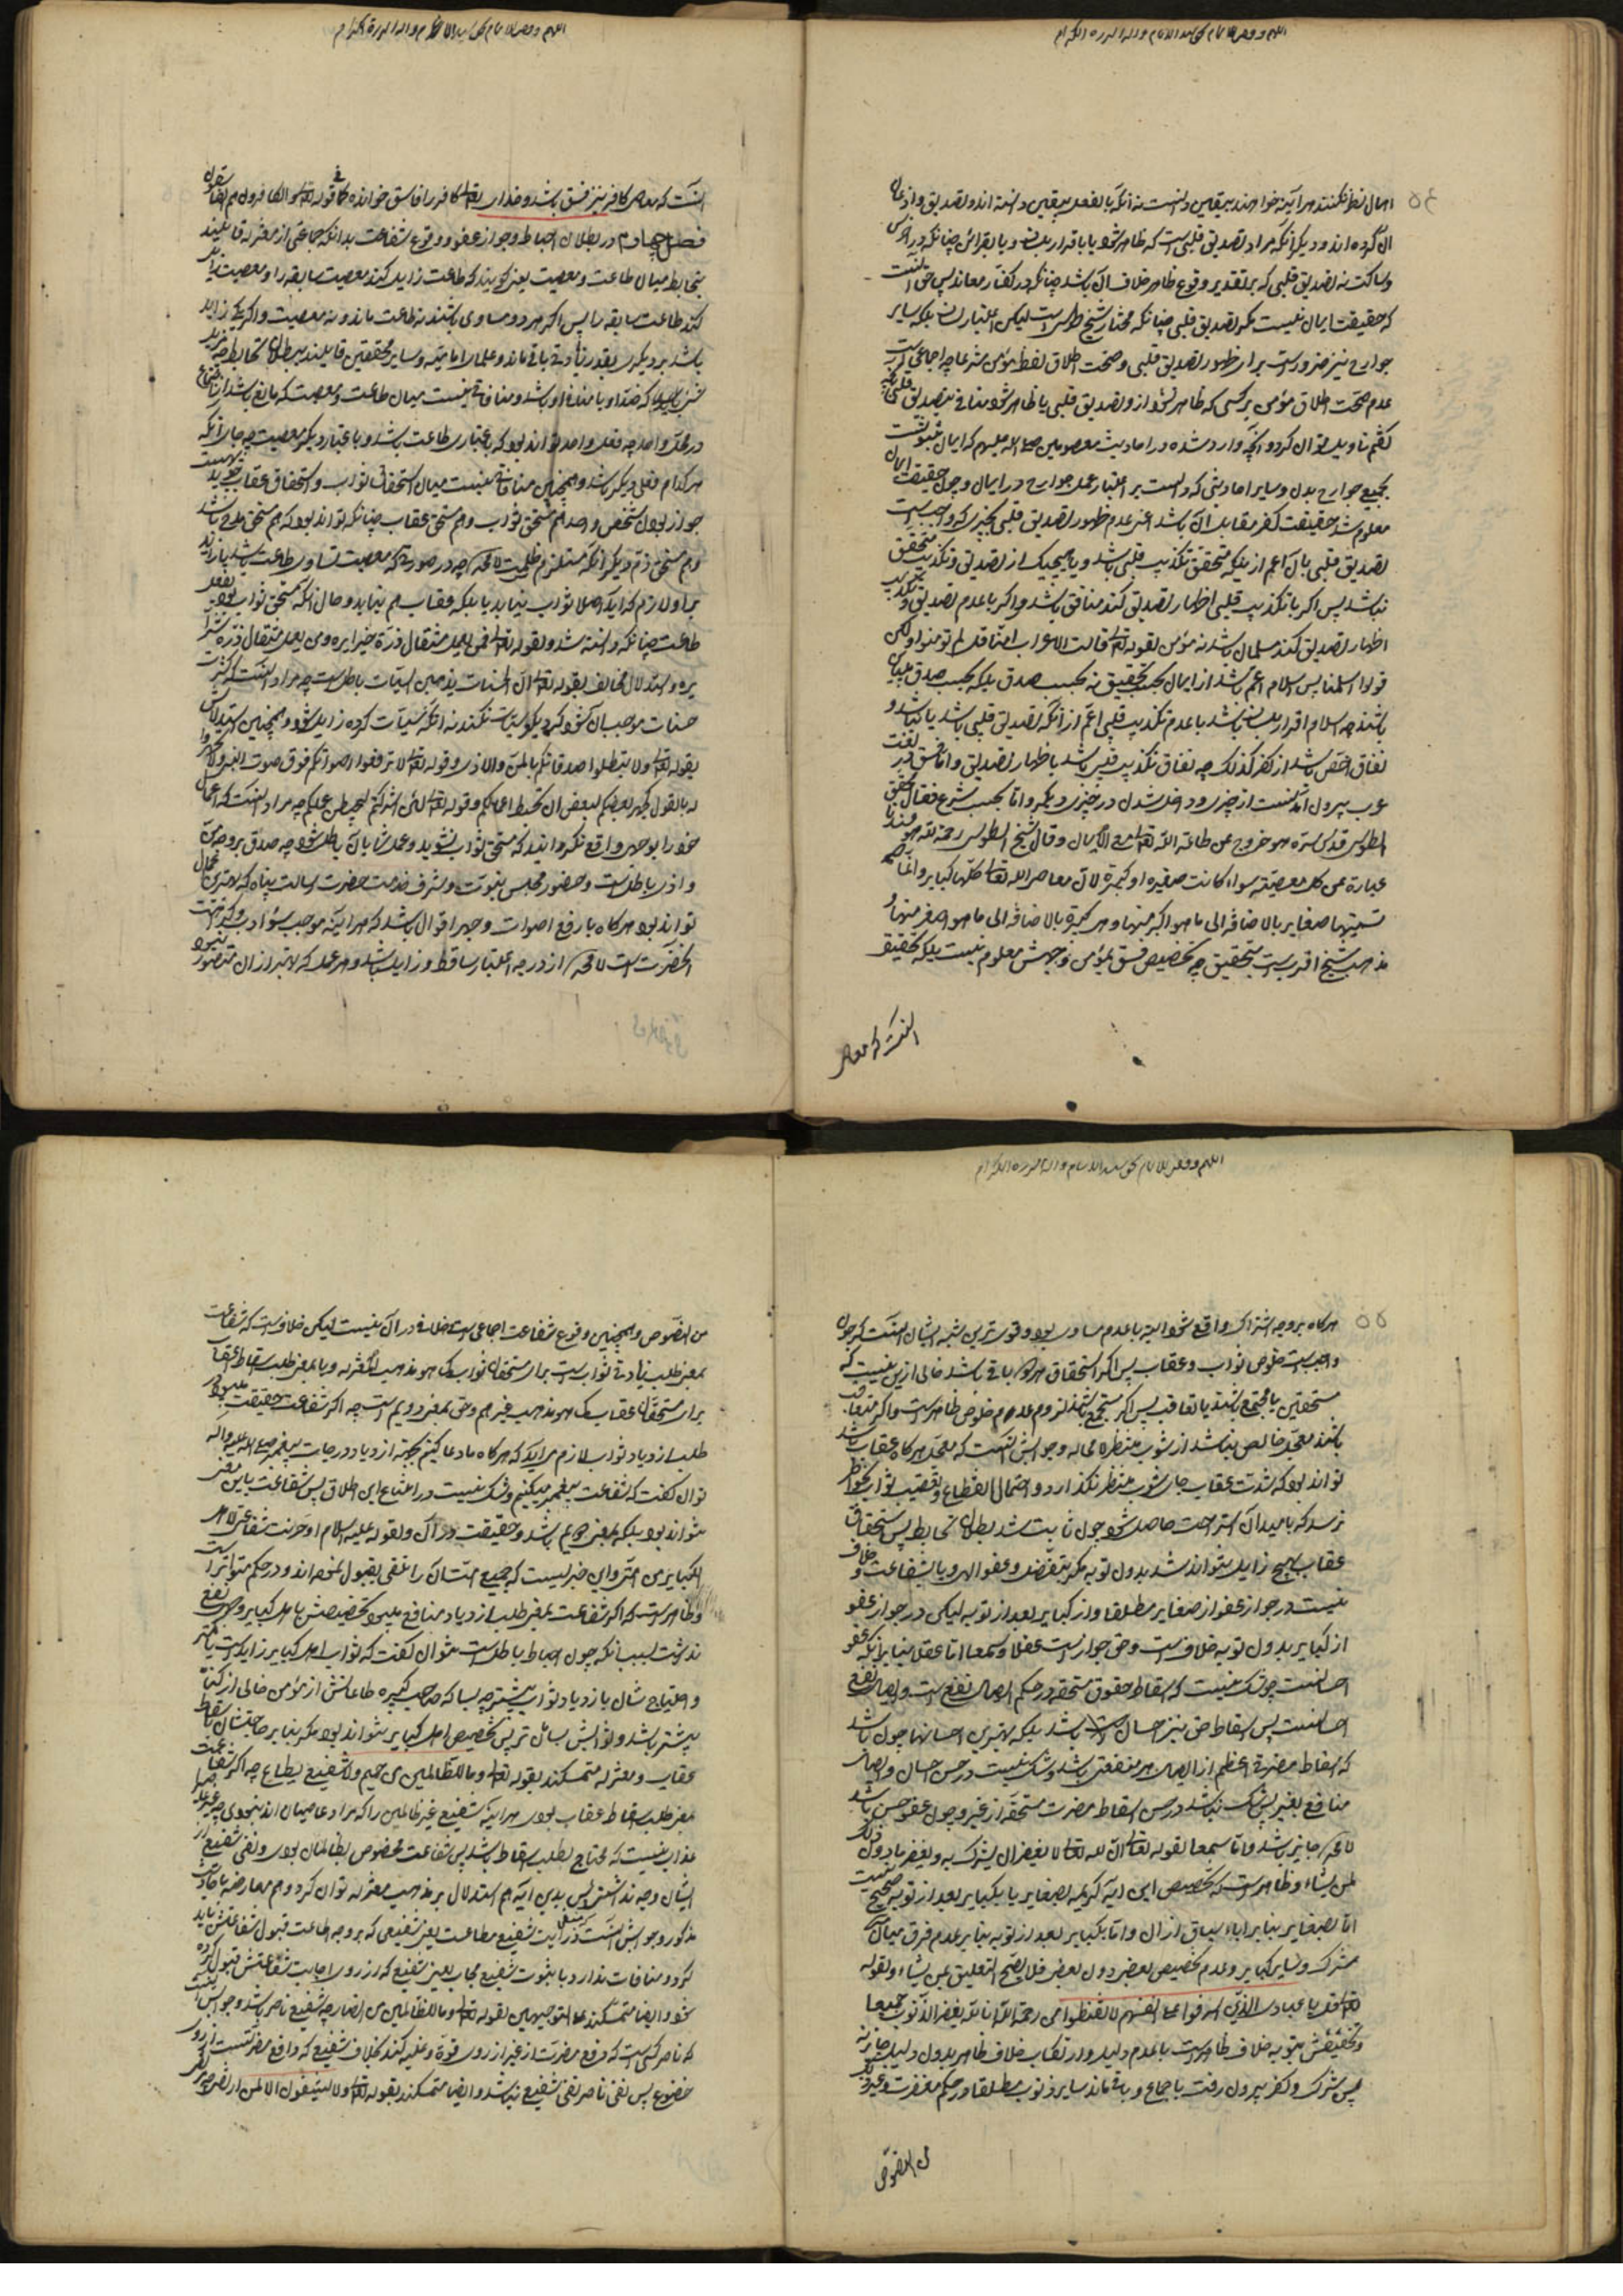 اللهم و
اهمال نظر نکنند هر آینه خواهند بیقین دانست نه آنکه بالفعل بیقین دانسته اند و تصدیق و اذعان
آن کرده اند و دیگر آنکه مراد تصدیق قلبی است که ظاهر شود یا باقرار بلسان و یا بقرائن چنانکه در اخرس
و ساکت نه تصدیق قلبی که بر تقدیر وقوع ظاهر خلاف آن باشد چنانکه در کفار معاند پس حق آنست
که حقیقت ایمان نیست مگر تصدیق قلبی چنانکه مختار شیخ طوسی است لیکن اعتبار لسان بلکه سایر
جوارح نیز ضرورست برای ظهور تصدیق قلبی و صحت اطلاق لفظ مؤمن شرعا چه اجماعی است که
عدم صحت اطلاق مؤمن بر کسی که ظاهر نشود ازو تصدیق قلبی یا ظاهر شود منافی تصدیق قلبی
توان کرد و آنچه وارد شده در احادیث معصومین صلی الله علیهم که ایمان
بجمیع جوارح بدن و سایر احادیثی که دالست بر اعتبار عمل جوارح در ایمان و چون حقیقت ایمان
معلوم شد حقیقت کفر مقابل آن باشد اعنی عدم ظهور تصدیق قلبی بچیزی که واجبست
تصدیق قلبی بآن اعم از اینکه متحقق تکذیب قلبی باشد و یا هیچیک از تصدیق و تکذیب متحقق
نباشد پس اگر با تکذیب قلبی اظهار تصدیق کند منافق باشد و اگر با عدم تصدیق و تکذیب
اظهار تصدیق کند مسلمان باشد نه مؤمن لقوله تعالی قالت الاعراب امنا قل لم تومنوا ولکن
قولوا اسلمنا پس اسلام اعم باشد از ایمان بحسب تحقیق نه بحسب صدق بلکه بحسب صدق
باشند چه اسلام اقرار بلسان باشد با عدم تکذیب قلبی اعم از آنکه تصدیق قلبی باشد یا نباشد و
نفاق اخص باشد از کفر کذلک چه نفاق تکذیب قلبی باشد با اظهار تصدیق و اما فسق در لغت
عرب بیرون آمدنست از چیزی و داخل شدن در چیزی دیگر و اما بحسب شرع فقال المحقق
الطوسی قدس سره هو خروج عن طاعة الله تعالی مع الایمان و قال شیخ الطوسی رحمه الله هو عندنا
عبارة عن کل معصیة سواء کانت صغیرة او کبیرة لان معاصی الله تعالی کلها کبایر و انما
تسمیتها صغایر بالاضافة الی ما هو اکبر منها و هی کبیرة بالاضافة الی ما هو اصغر منها و
مذهب شیخ اقربست بتحقیق چه تخصیص فسق بمؤمن وجهش معلوم نیست بلکه تحقیق
آنست که معاصی
آنست که معاصی کافر نیز فسق باشد و خدای تعالی کافر را فاسق خوانده کما فی قوله تعالی
فصل چهارم در بطلان احباط و جواز عفو و وقوع شفاعت بدانکه جماعتی از معتزله قایلند
بتحابط میان طاعت و معصیت یعنی گویند که طاعت زایل کند معصیت سابقه را و معصیت زایل
کند طاعت سابقه را پس اگر هر دو مساوی باشند نه طاعت ماند و نه معصیت و اگر یکی زاید
باشد بر دیگری بقدر زیادتی باقی ماند و علمای امامیه و سایر محققین قایلند ببطلان تحابط چه
در محل واحد چه فعل واحد تواند بود که باعتباری طاعت باشد و باعتبار دیگر معصیت چه جای آنکه
هر کدام فعلی دیگر باشد و همچنین منافاتی نیست میان استحقاق ثواب و استحقاق عقاب
جواز بودن شخص واحد هم مستحق ثواب و هم مستحق عقاب چنانکه تواند بود که هم مستحق مدح باشد
و هم مستحق ذم و دیگر آنکه مستلزم ظلمست لا محاله چه در صورتی که معصیت مساوی طاعت باشد یا زاید
بر او لازم که اصلا ثواب نیابد یا بلکه عقاب هم نیابد و حال آنکه مستحق ثواب بود بفعل
طاعت چنانکه دانسته شد و لقوله تعالی فمن یعمل مثقال ذرة خیرا یره و من یعمل مثقال ذرة شرا
یره و استدلال مخالف بقوله تعالی ان الحسنات یذهبن السیئات باطلست چه مراد آنست که کثرت
حسنات موجب آن شود که دیگر سیئات نکند نه آنکه سیئات کرده زایل شود و همچنین استدلال
بقوله تعالی ولا تبطلوا صدقاتکم بالمن والاذی و قوله تعالی لا ترفعوا اصواتکم فوق صوت النبی ولا تجهروا
له بالقول کجهر بعضکم لبعض ان تحبط اعمالکم و قوله تعالی لئن اشرکت لیحبطن عملک چه مراد آنست که اعمال
خود را بوجهی واقع نگردانید که مستحق ثواب نشوید و عمل شما باطل شود چه صدقه بر وجه من
و اذی باطلست و حضور مجلس نبوت و شرف خدمت حضرت رسالت پناه که
تواند بود هر گاه با رفع اصوات و جهر اقوال باشد که هر آینه موجب سوء ادب
آنحضرت است لا محاله از درجه اعتبار ساقط و زایل باشد و هر عمل که بهتر از آن متصور نبود
اللهم و
هر گاه بر وجه اشتراک واقع شود البته با عدم مساوی بود و قوی ترین شبه ایشان آنست که چون
واجبست خلوص ثواب و عقاب پس اگر استحقاق هر دو باقی باشد خالی ازین نیست که
مستحقین یا مجتمع باشند یا متعاقب پس اگر مجتمع باشند لزوم عدم خلوص ظاهرست و اگر متعاقب
باشند معجل خالص نباشد از شوب منتظر لا محاله و جوابش آنست که معجل هر گاه عقاب باشد
تواند بود که شدت عقاب جای شوب منتظر نگذارد و احتمال انقطاع و تعقیب ثواب بخاطر
نرسد که بامید آن استراحت حاصل شود و چون ثابت شد بطلان تحابط پس استحقاق
عقاب بهیچ زایل نتواند شد بدون توبه مگر بتفضل و عفو الهی و یا بشفاعت و خلاف
نیست در جواز عفو از صغایر مطلقا و از کبایر بعد از توبه لیکن در جواز عفو
از کبایر بدون توبه خلافست و حق جوازست عقلا و سمعا اما عقلا بنا بر آنکه عفو
احسانست چه شک نیست که اسقاط حقوق مستحقه در حکم ایصال نفع است و ایصال نفع
احسانست پس اسقاط حق نیز احسان باشد بلکه بهترین احسانها چون باشد
که اسقاط مضرتی اعظم از ایصال هر منفعتی باشد و شک نیست در حسن احسان و ایصال
منافع بغیر پس شک نباشد در حسن اسقاط مضرت مستحقه از غیر و چون عفو حسن باشد
لا محاله جایز باشد و اما سمعا لقوله تعالی ان الله تعالی لا یغفر ان یشرک به و یغفر ما دون ذلک
لمن یشاء و ظاهرست که تخصیص این آیه کریمه بصغایر یا بکبایر بعد از توبه صحیح نیست
اما بصغایر بنا بر اباء سیاق از آن و اما بکبایر بعد از توبه بنا بر عدم فرق میان
شرک و سایر کبایر و عدم تخصیص بعضی دون بعضی فلا یصح التعلیق بمن یشاء و لقوله
تعالی قل یا عبادی الذین اسرفوا علی انفسهم لا تقنطوا من رحمة الله ان الله یغفر الذنوب جمیعا
و تخصیصش بتوبه خلاف ظاهرست با عدم دلیل و ارتکاب خلاف ظاهر بدون دلیل جایز نه
پس شرک و کفر بیرون رفت باجماع و باقی ماند سایر ذنوب مطلقا در حکم مغفرت و غیر ذلک
من النصوص
من النصوص و همچنین وقوع شفاعت اجماعی است و خلاف در آن نیست لیکن خلافست که شفاعت
بمعنی طلب زیادتی ثواب است برای مستحقان ثواب کما هو مذهب المعتزله و یا بمعنی طلب اسقاط عقاب
برای مستحقان عقاب کما هو مذهب غیرهم و حق بمعنی دویم است چه اگر شفاعت حقیقت
طلب ازدیاد ثواب لازم می آید که هر گاه ما دعا کنیم بجهة ازدیاد درجات پیغمبر صلی الله علیه و آله
توان گفت که شفاعت پیغمبر میکنیم و شک نیست در امتناع این اطلاق پس شفاعت باین معنی
نتواند بود بلکه بمعنی دویم باشد و حقیقت در آن و لقوله علیه السلام ادخرت شفاعتی لاهل
الکبایر من امتی و این خبریست که جمیع امت آن را تلقی بقبول نموده اند و در حکم متواترست
و ظاهرست که اگر شفاعت بمعنی طلب ازدیاد منافع میبود تخصیصش باهل کبایر وجهی
نداشت بسبب آنکه چون احباط باطلست نتوان گفت که ثواب اهل کبایر زایل است
و احتیاج شان بازدیاد ثواب بیشتر چه بسا که صاحب کبیره طاعاتش از مؤمن خالی از کبایر
بیشتر باشد و ثوابش بسامان تر پس تخصیص اهل کبایر نتواند بود مگر بنا بر احتیاج شان باسقاط
عقاب و معتزله متمسکند بقوله تعالی و ما للظالمین من حمیم ولا شفیع یطاع چه اگر شفاعت
بمعنی طلب اسقاط عقاب بودی هر آینه شفیع غیر ظالمین را که مراد عاصیان اند نبودی
عذاب نیست که محتاج بطلب اسقاط باشد پس شفاعت مخصوص بظالمان بودی و نفی شفیع از
ایشان وجه نداشتی پس بدین آیه هم استدلال بر مذهب معتزله توان کرد و هم
مذکور و جوابش آنست که منفی در آیت شفیع مطاعست یعنی شفیعی که بر وجه اطاعت قبول شفاعتش باید
کرد و منافات ندارد با ثبوت شفیع مجاب یعنی شفیع که از روی اجابت شفاعتش قبول کرده
شود و ایضا متمسکند علی التوجیهین بقوله تعالی و ما للظالمین من انصار چه شفیع ناصر باشد و جوابش آنست
که ناصر کسی است که دفع مضرت از غیر از روی قوة و غلبه کند بخلاف شفیع که دافع مضرتست از روی
خضوع پس نفی ناصر نفی شفیع نباشد و ایضا متمسکند بقوله تعالی ولا یشفعون الا لمن ارتضی